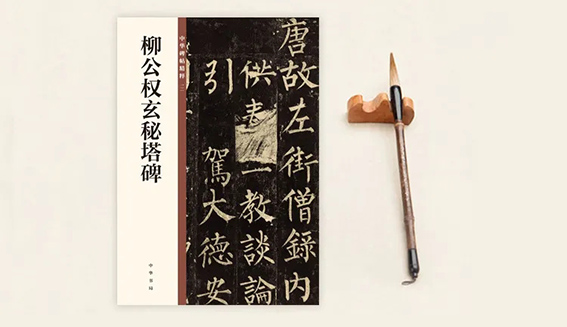 柳公权玄秘塔碑
中华碑帖精粹
中华书局
唐故左街僧錄内
供奉一教談論
引 駕大德安